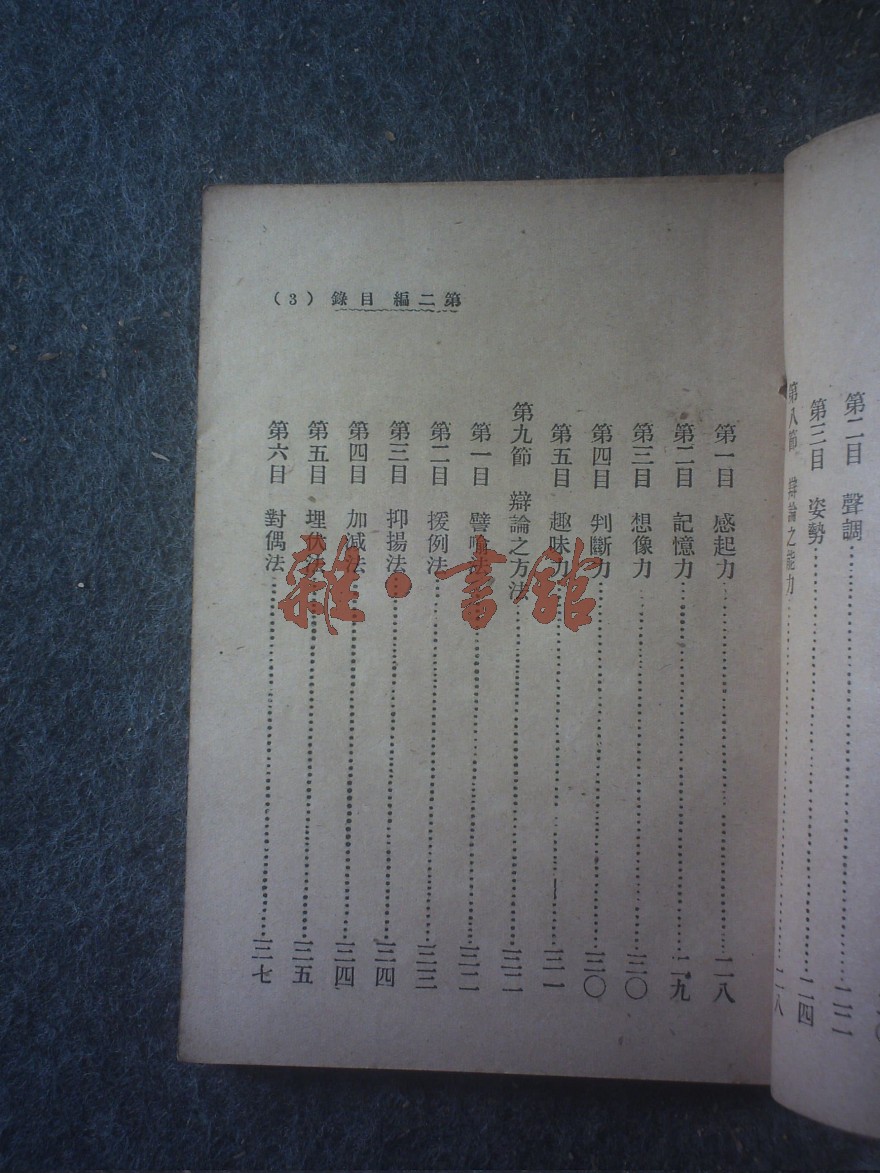 第二目 聲調……二二
第三目 姿勢……二四
第八節 辯論之能力……二八
第二編 目錄 (3)
第一目 感起力……二八
第二目 記憶力……二九
第三目 想像力……三〇
第四目 判斷力……三〇
第五目 趣味力……三一
第九節 辯論之方法……三二
第一目 譬喻法……三二
第二目 援例法……三三
第三目 抑揚法……三四
第四目 加減法……三四
第五目 埋伏法……三五
第六目 對偶法……三七
雜·書館